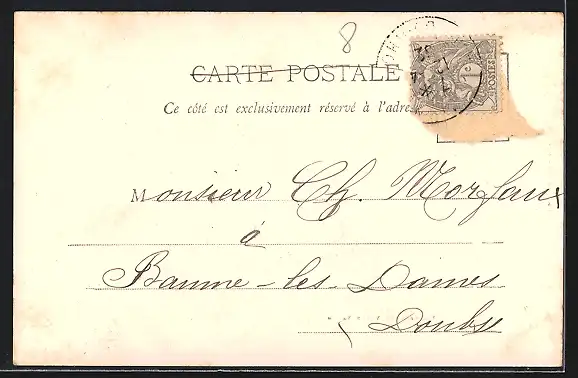 8
CARTE POSTALE
Ce côté est exclusivement réservé à l'adres
1c
POSTES
Monsieur Ch. Morfaux
à
Baume-les-Dames
Doubs